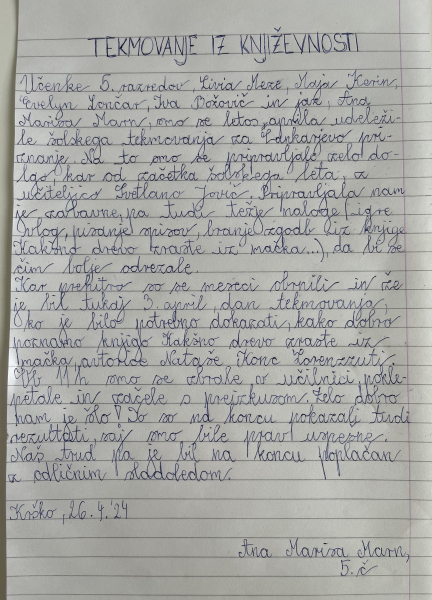 TEKMOVANJE IZ KNJIŽEVNOSTI
Učenke 5. razredov, Livia Meze, Maja Kerin,
Evelyn Lončar, Iva Božovič in jaz, Ana
Marisa Marn, smo se letos aprila udeleži-
le šolskega tekmovanja za Cankarjevo pri-
znanje. Na to smo se pripravljale zelo do-
lgo kar od začetka šolskega leta, z
učiteljico Svetlano Jovič. Pripravljala nam
je zabavne, pa tudi težje naloge (igre
vlog, pisanje spisov, branje zgodb iz knjige
Kakšno drevo zraste iz mačka...), da bi se
čim bolje odrezale.
Kar prehitro so se meseci obrnili in že
je bil tukaj 3. april, dan tekmovanja,
ko je bilo potrebno dokazati, kako dobro
poznamo knjigo Kakšno drevo zraste iz
mačka, avtorice Nataše Konc Lorenzutti.
Ob 11h smo se zbrale v učilnici, pokle-
petale in začele s preizkusom. Zelo dobro
nam je šlo! To so na koncu pokazali tudi
rezultati, saj smo bile prav uspešne.
Naš trud pa je bil na koncu poplačan
z odličnim sladoledom.
Krško, 26.4.'24
Ana Marisa Marn,
5.č